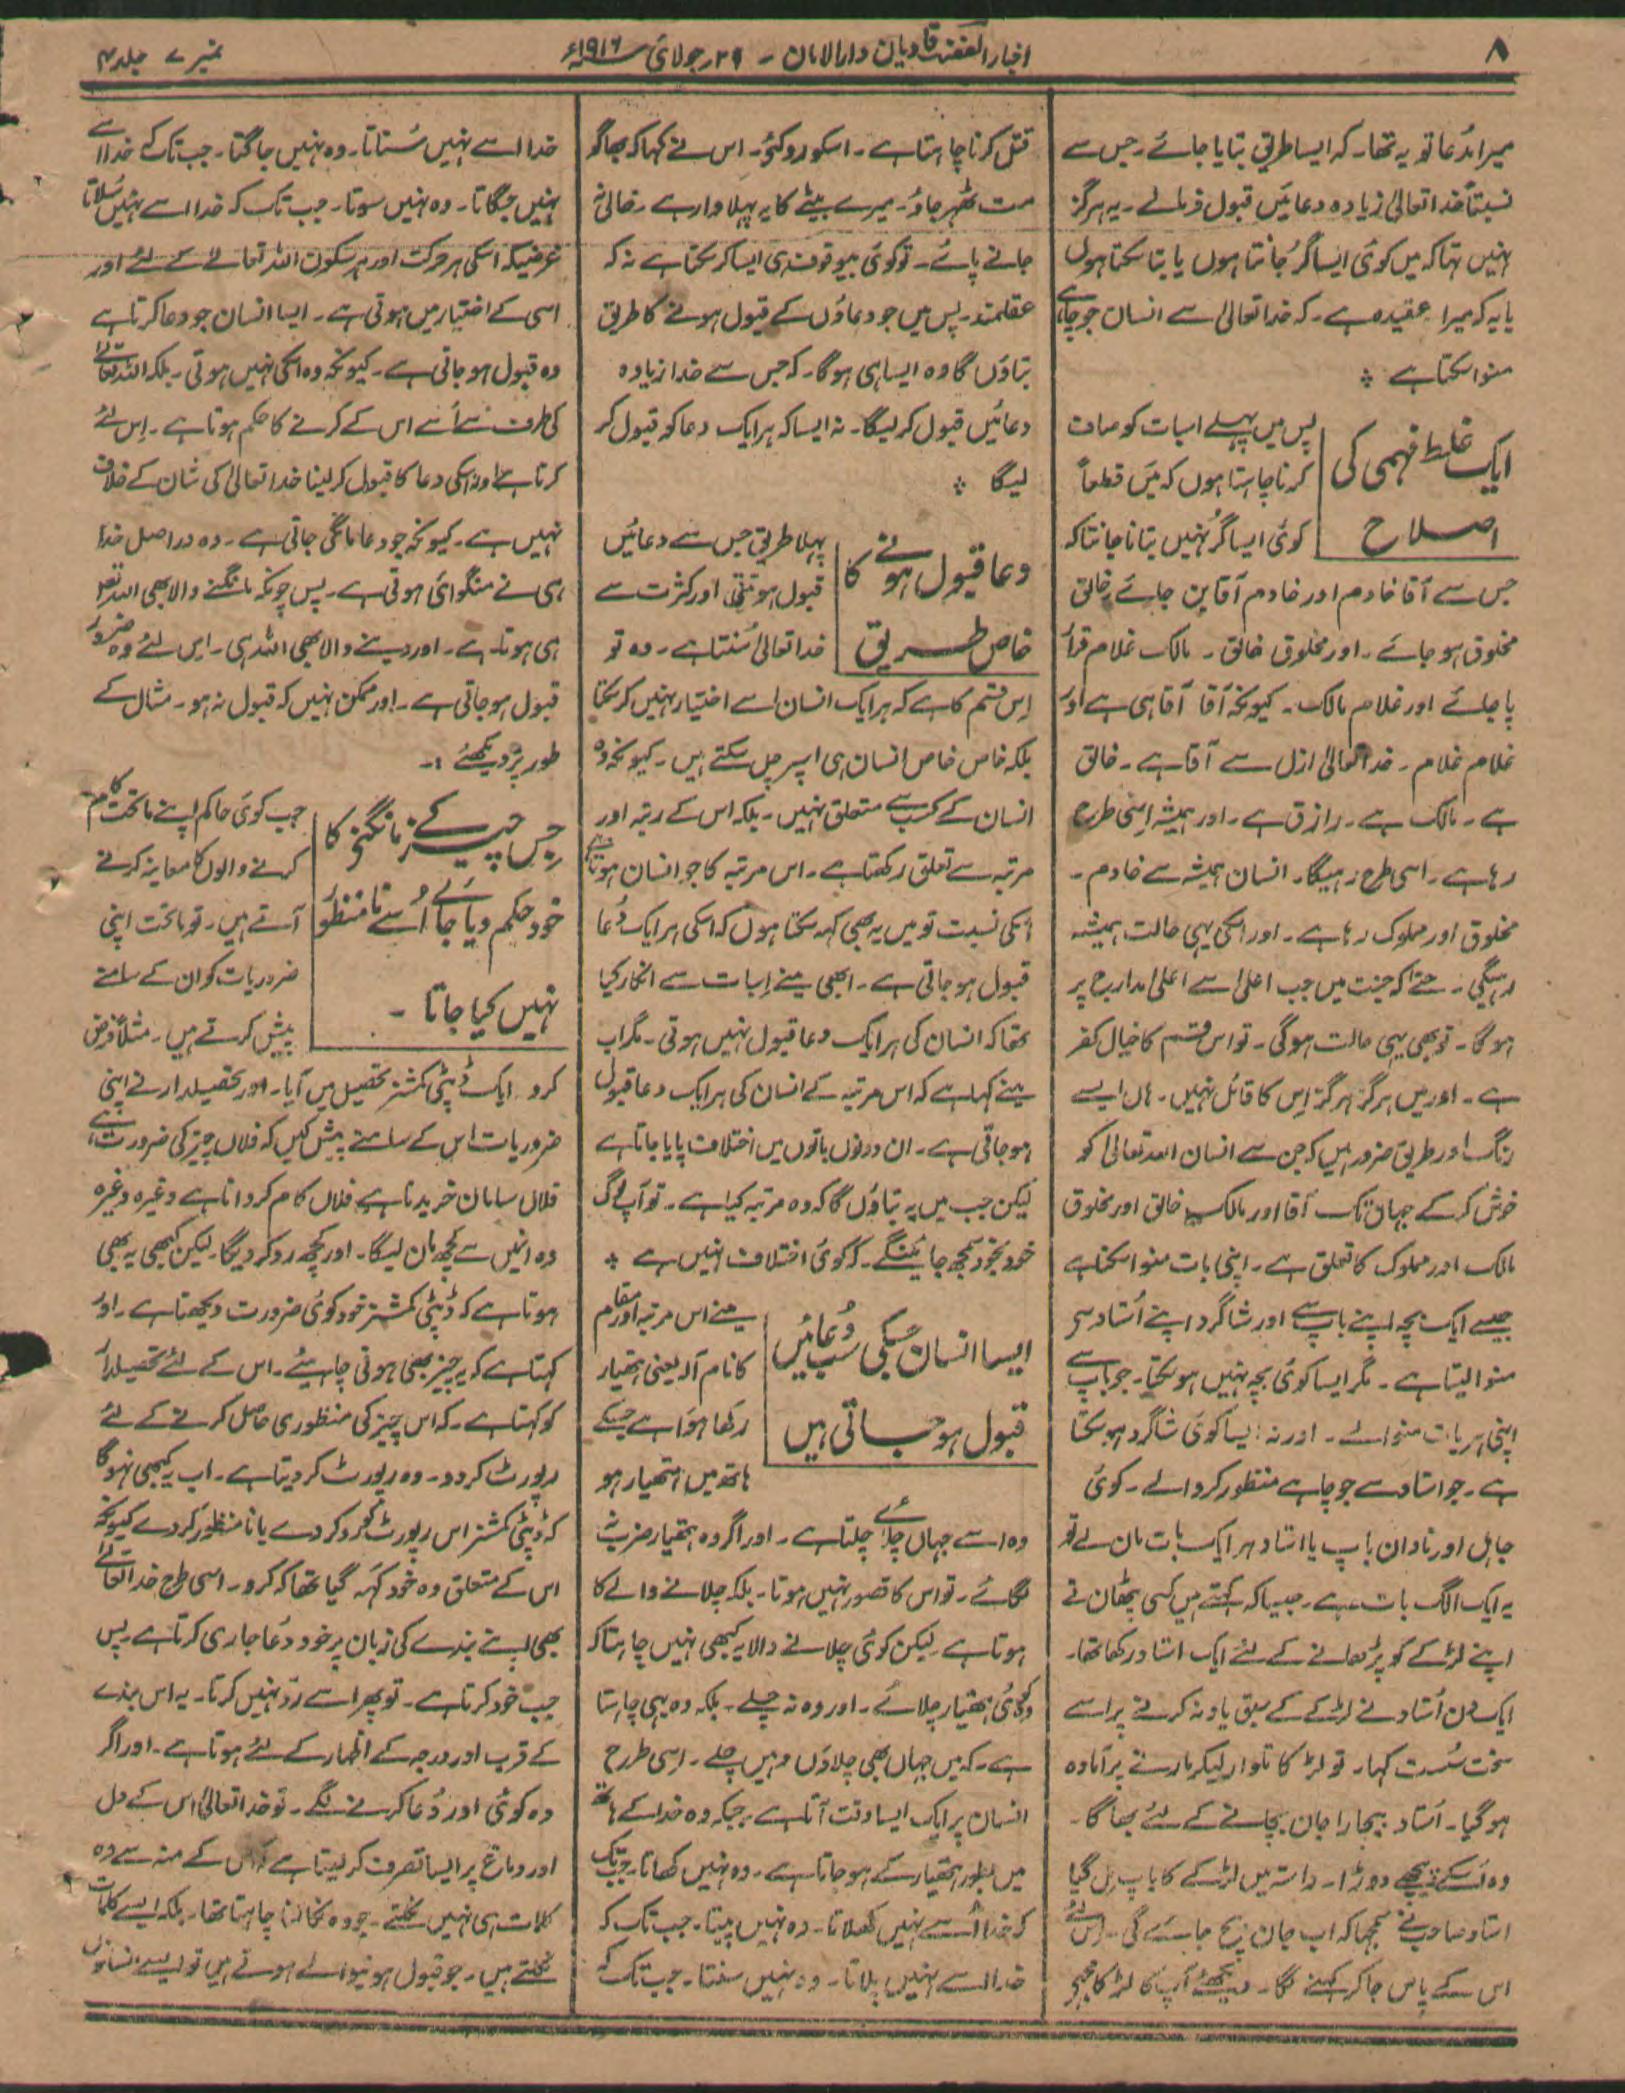 ۸
اخبار الفضل قادیان دارالامان - ۲۹؍ جولائی ۱۹۱۶ء
نمبر ۷ جلد ۴
میرا مدُعا تو یہ تھا۔ کہ ایسا طریق بتایا جائے۔ جس سے
نسبتاً خدا تعالیٰ زیادہ دعائیں قبول فرمالے۔ یہ ہرگز
نہیں تہا کہ میں کوئی ایسا گُر جانتا ہوں یا بتا سکتا ہوں
یا یہ کہ میرا عقیدہ ہے۔ کہ خدا تعالیٰ سے انسان جو چاہے
منوا سکتا ہے ؞
ایک غلط فہمی کی
اصلاح
پس میں پہلے اسبات کو صاف
کرنا چاہتا ہوں کہ میَں قطعاً
کوئی ایسا گُر نہیں بتانا جانتا کہ
جس سے آقا خادم اور خادم آقا بن جائے خالق
مخلوق ہو جائے۔ اور مخلوق خالق۔ مالک غلام قرار
پا جائے اور غلام مالک۔ کیونکہ آقا آقا ہی ہے اور
غلام غلام۔ خدا تعالیٰ ازل سے آقا ہے۔ خالق
ہے۔ مالک ہے۔ رازق ہے۔ اور ہمیشہ اِسی طرح
رہا ہے۔ اسی طرح رہیگا۔ انسان ہمیشہ سے خادم۔
مخلوق اور مملوک رہا ہے۔ اور اسکی یہی حالت ہمیشہ
رہیگی۔ حتےٰ کہ جنت میں جب اعلیٰ سے اعلیٰ مدارج پر
ہوگا۔ تو بھی یہی حالت ہوگی۔ تو اس قسم کا خیال کفر
ہے۔ اور میں ہرگز ہرگز اِس کا قائل نہیں۔ ہاں ایسے
رنگ اور طریق ضرور ہیں کہ جن سے انسان اللہ تعالیٰ کو
خوش کر کے جہاں تک آقا اور مالک خالق اور مخلوق
مالک اور مملوک کا تعلق ہے۔ اپنی بات منوا سکتا ہے
جیسے ایک بچہ اپنے باپ سے اور شاگرد اپنے اُستاد سے
منوا لیتا ہے۔ مگر ایسا کوئی بچہ نہیں ہو سکتا۔ جو باپ سے
اپنی ہر بات منوالے۔ اور نہ ایسا کوئی شاگرد ہو سکتا
ہے۔ جو استاد سے جو چاہے منظور کروالے۔ کوئی
جاہل اور نادان باپ یا استاد ہر ایک بات مان لے تو
یہ ایک الگ بات ہے۔ جیسا کہ کہتے ہیں کسی پٹھان نے
اپنے لڑکے کو پڑھانے کے لئے ایک استاد رکھا تھا۔
ایک دن اُستاد نے لڑکے کے سبق یاد نہ کرنے پر اسے
سخت سُست کہا۔ تو لڑکا تلوار لیکر مارنے پر آمادہ
ہو گیا۔ اُستاد بیچارا جان بچانے کے لئے بھاگا۔
وہ اُسکے پیچھے دوڑا۔ راستہ میں لڑکے کا باپ مل گیا
استاد صاحب نے سمجہا کہ اب جان بچ جائے گی۔ اس لئے
اس کے پاس جا کر کہنے لگا۔ دیکھئے آپکا لڑکا مجھے
قتل کرنا چاہتا ہے۔ اسکو روکئیے۔ اس نے کہا کہ بھاگو
مت ٹھہر جاؤ۔ میرے بیٹے کا یہ پہلا وار ہے۔ خالی نہ
جانے پائے۔ تو کوئی بیوقوف ہی ایسا کر سکتا ہے نہ کہ
عقلمند۔ پس میں جو دعاؤں کے قبول ہونے کا طریق
بتاؤں گا وہ ایسا ہی ہوگا۔ کہ جس سے خدا زیادہ
دعائیں قبول کر لیگا۔ نہ ایسا کہ ہر ایک دعا کو قبول کر
لیگا ؞
دعا قبول ہونے کا
خاص طریق
پہلا طریق جس سے دعائیں
قبول ہوتیں اور کثرت سے
خدا تعالیٰ سُنتا ہے۔ وہ تو
اِس قسم کا ہے کہ ہر ایک انسان اسے اختیار نہیں کر سکتا
بلکہ خاص خاص انسان ہی اسپر چل سکتے ہیں۔ کیونکہ وہ
انسان کے کسب سے متعلق نہیں۔ بلکہ اس کے رتبہ اور
مرتبہ سے تعلق رکھتا ہے۔ اس مرتبہ کا جو انسان ہوتا ہے
اسکی نسبت تو میں یہ بھی کہہ سکتا ہوں کہ اسکی ہر ایک دُعا
قبول ہو جاتی ہے۔ ابھی مینے اِسبات سے انکار کیا
تھا کہ انسان کی ہر ایک دعا قبول نہیں ہوتی۔ مگر اب
مینے کہا ہے کہ اس مرتبہ کے انسان کی ہر ایک دعا قبول
ہو جاتی ہے۔ ان دونوں باتوں میں اختلاف پایا جاتا ہے
لیکن جب میں یہ بتاؤں گا کہ وہ مرتبہ کیا ہے۔ تو آپ لوگ
خود بخود سمجھ جائینگے۔ کہ کوئی اختلاف نہیں ہے ؞
ایسا انسان جسکی سب دُعائیں
قبول ہو جاتی ہیں
مینے اس مرتبہ اور مقام
کا نام آلہ یعنی ہتھیار
رکھا ہوَا ہے جسکے
ہاتھ میں ہتھیار ہو
وہ اسے جہاں چلائے چلتا ہے۔ اور اگر وہ ہتھیار ضرب نہ
لگائے۔ تو اس کا قصور نہیں ہوتا۔ بلکہ چلانے والے کا
ہوتا ہے۔ لیکن کوئی چلانے والا یہ کبھی نہیں چاہتا کہ
وہ کوئی ہتھیار چلائے۔ اور وہ نہ چلے۔ بلکہ وہ یہی چاہتا
ہے۔ کہ میں جہاں بھی چلاؤں وہیں چلے۔ اسی طرح
انسان پر ایک ایسا وقت آتا ہے۔ جبکہ وہ خدا کے ہاتھ
میں بطور ہتھیار کے ہو جاتا ہے۔ وہ نہیں کھاتا۔ جبتک
کہ خدا اُسے نہیں کھلاتا۔ وہ نہیں پیتا۔ جب تک کہ
خدا اسے نہیں پلاتا۔ وہ نہیں سنتا۔ جب تک کہ
خدا اسے نہیں سُناتا۔ وہ نہیں جاگتا۔ جب تک کہ خدا اسے
نہیں جگاتا۔ وہ نہیں سوتا۔ جب تک کہ خدا اسے نہیں سُلاتا
غرضیکہ اسکی ہر حرکت اور ہر سکون اللہ تعالےٰ کے لئے اور
اسی کے اختیار میں ہوتی ہے۔ ایسا انسان جو دعا کرتا ہے
وہ قبول ہو جاتی ہے۔ کیونکہ وہ اسکی نہیں ہوتی۔ بلکہ اللہ تعالیٰ
کی طرف سے اُسے اس کے کرنے کا حکم ہوتا ہے۔ اِس لئے
کرتا ہے اور اسکی دعا کا قبول کر لینا خدا تعالیٰ کی شان کے خلاف
نہیں ہے۔ کیونکہ جو دعا مانگی جاتی ہے۔ وہ دراصل خدا
ہی نے منگوائی ہوتی ہے۔ پس چونکہ مانگنے والا بھی اللہ تعالیٰ
ہی ہوتا ہے۔ اور دینے والا بھی اللہ ہی۔ اِس لئے وہ ضرور
قبول ہو جاتی ہے۔ اور ممکن نہیں کہ قبول نہ ہو۔ مثال کے
طور پر دیکھئے :۔
جس چیز کے مانگنے کا
خود حکم دیا جائے اُسے نامنظور
نہیں کیا جاتا۔
جب کوئی حاکم اپنے ماتحت کام
کرنے والوں کا معاینہ کرنے
آتے ہیں۔ تو ماتحت اپنی
ضروریات کو ان کے سامنے
پیش کرتے ہیں۔ مثلاً فرض
کرو ایک ڈپٹی کمشنر تحصیل میں آیا۔ اور تحصیلدار نے اپنی
ضروریات اس کے سامنے پیش کیں کہ فلاں چیز کی ضرورت ہے
فلاں سامان خریدنا ہے فلاں کام کروانا ہے وغیرہ وغیرہ
وہ انمیں سے کچھ مان لیگا۔ اور کچھ رد کر دیگا۔ لیکن کبھی یہ بھی
ہوتا ہے کہ ڈپٹی کمشنر خود کوئی ضرورت دیکھتا ہے۔ اور
کہتا ہے کہ یہ چیز بھی ہونی چاہیئے۔ اس کے لئے تحصیلدار
کو کہتا ہے۔ کہ اس چیز کی منظوری حاصل کرنے کے لئے
رپورٹ کردو۔ وہ رپورٹ کر دیتا ہے۔ اب یہ کبھی نہوگا
کہ ڈپٹی کمشنر اس رپورٹ کو رد کر دے یا نامنظور کر دے کیونکہ
اس کے متعلق وہ خود کہہ گیا تھا کہ کرو۔ اسی طرح خدا تعالےٰ
بھی اپنے بندے کی زبان پر خود دُعا جاری کرتا ہے۔ پس
جب خود کرتا ہے۔ تو پھر اسے ردّ نہیں کرتا۔ یہ اس بندے
کے قرب اور درجہ کے اظہار کے لئے ہوتا ہے۔ اور اگر
وہ کوئی اور دُعا کرنے لگے۔ تو خدا تعالیٰ اس کے دل
اور دماغ پر ایسا تصرف کر لیتا ہے کہ اس کے منہ سے وہ
کلمات ہی نہیں نکلتے۔ جو وہ نکالنا چاہتا تھا۔ بلکہ ایسے کلمات
نکلتے ہیں۔ جو قبول ہونیوالے ہوتے ہیں تو ایسے انسانوں